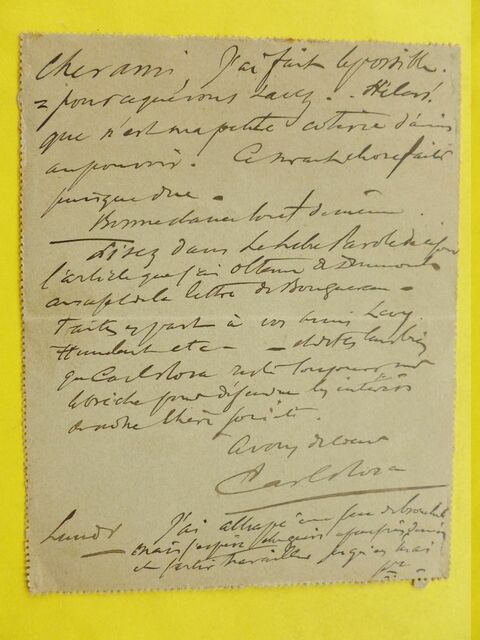 Cher ami, J'ai fait le possible
pour ce que vous savez. - Hélas!
que n'est ma petite coterie d'amis
au pouvoir. Ce serait chose faite
puisque due -
Bonne chance tout de même.
Lisez dans La Libre Parole de ce jour
l'article que j'ai obtenu de Drumont
au sujet de la lettre de Bouguereau -
Faites en part à vos amis Lavy
et dites leur bien
que Carlo Rosa reste toujours sur
la brèche pour défendre les intérêts
de notre chère société.
A vous de coeur
Carlo Rosa
Lundi
J'ai attrapé un peu de bronchite
mais j'espère
et travailler